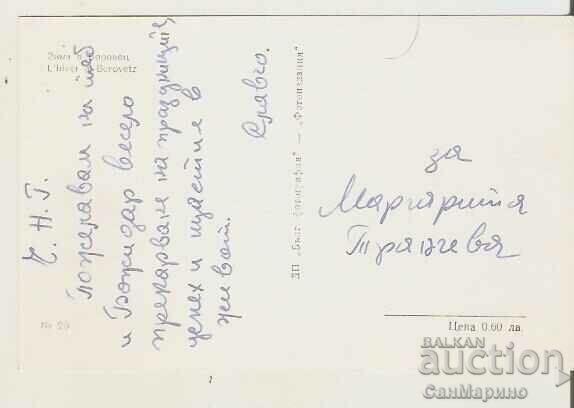 Зима в Боровец
L'hiver à Borovetz
Ч. Н. Г.
Пожелавам на теб
и Божидар весело
прекарване на празниците,
успех и щастие в
живот.
Славчо.
ДП „Бълг. фотография“ — „Фотоиздания“
за
Маргарита
Транчева
№ 29
Цена 0.60 лв.
BALKAN
auction
СанМарино